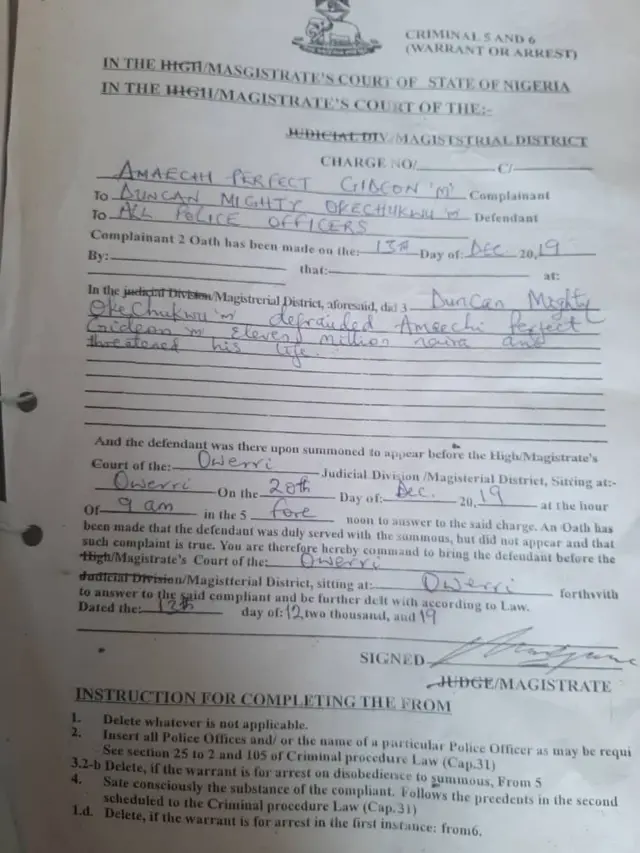 CRIMINAL 5 AND 6
(WARRANT OR ARREST)
IN THE HIGH/MASGISTRATE'S COURT OF STATE OF NIGERIA
IN THE HIGH/MAGISTRATE'S COURT OF THE:-
JUDICIAL DIV/MAGISTSTRIAL DISTRICT
CHARGE NO/ C/
AMAECHI PERFECT GIDEON 'M' Complainant
To DUNCAN MIGHTY OKECHUKWU 'm' Defendant
To ALL POLICE OFFICERS
Complainant 2 Oath has been made on the: 13th Day of: DEC 20,19
By: that: at:
In the judicial Division/Magistrerial District, aforesaid, did 3 Duncan Mighty
Okechukwu 'm' defrauded Ameechi Perfect
Gideon 'm' Eleven million naira and
threatened his life.
And the defendant was there upon summoned to appear before the High/Magistrate's
Court of the: Owerri Judicial Division /Magisterial District, Sitting at:-
Owerri On the 20th Day of: Dec. 20,19 at the hour
Of 9 am in the 5 fore noon to answer to the said charge. An Oath has
been made that the defendant was duly served with the summous, but did not appear and that
such complaint is true. You are therefore hereby command to bring the defendant before the
High/Magistrate's Court of the: Owerri
Judicial Division/Magistterial District, sitting at: Owerri forthwith
to answer to the said compliant and be further delt with according to Law.
Dated the: 13th day of: 12 two thousand, and 19
SIGNED
JUDGE/MAGISTRATE
INSTRUCTION FOR COMPLETING THE FROM
1. Delete whatever is not applicable.
2. Insert all Police Offices and/ or the name of a particular Police Officer as may be requi
See section 25 to 2 and 105 of Criminal procedure Law (Cap.31)
3.2-b Delete, if the warrant is for arrest on disobedience to summous, From 5
4. Sate consciously the substance of the compliant. Follows the precedents in the second
scheduled to the Criminal procedure Law (Cap.31)
1.d. Delete, if the warrant is for arrest in the first instance: from6.